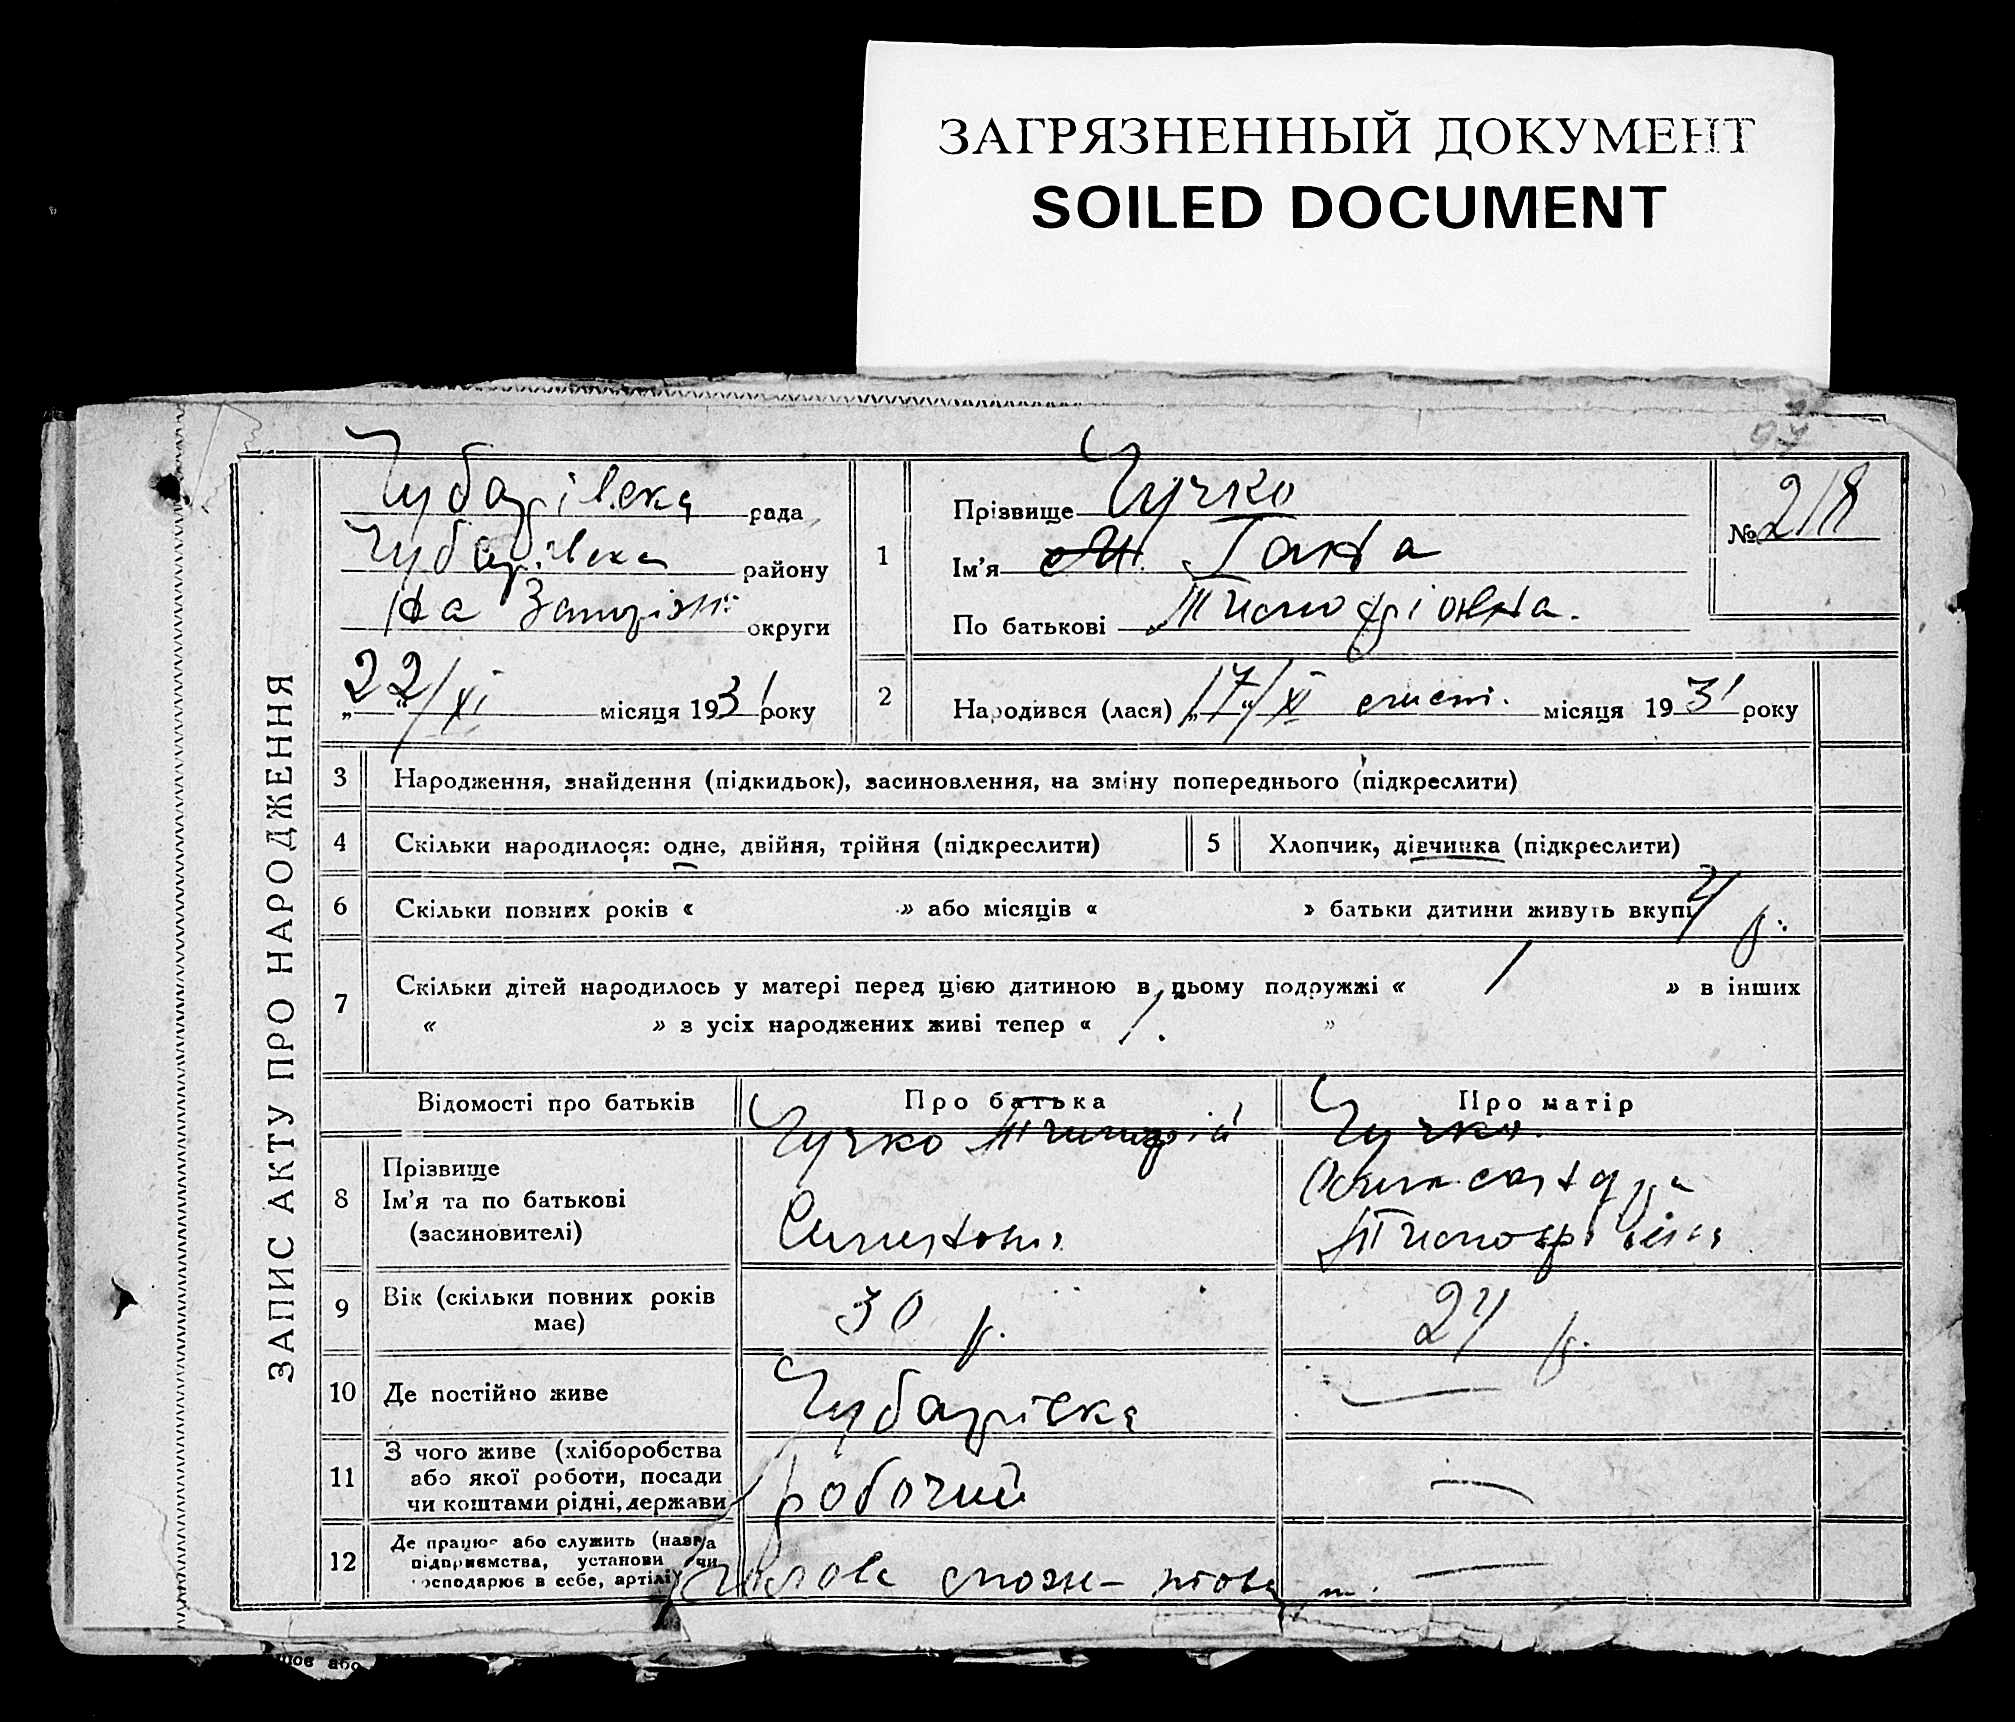 ЗАГРЯЗНЕННЫЙ ДОКУМЕНТ
SOILED DOCUMENT
97
ЗАПИС АКТУ ПРО НАРОДЖЕННЯ
Чубарівська рада
Чубарівськ району
На Запоріж округи
„22“/XI місяця 1931 року
1
Прізвище Чучко
Ім'я Ганна
По батькові Тимофіовна.
№ 218
2
Народився (лася) „17“/XI лист. місяця 1931 року
3 Народження, знайдення (підкидьок), засиновлення, на зміну попереднього (підкреслити)
4 Скільки народилося: одне, двійня, трійня (підкреслити)
5 Хлопчик, дівчинка (підкреслити)
6 Скільки повних років « » або місяців « » батьки дитини живуть вкупі 4 р.
7 Скільки дітей народилось у матері перед цією дитиною в цьому подружжі « 1 » в інших
« » з усіх народжених живі тепер « 1. »
Відомості про батьків Про батька Про матір
8 Прізвище
Ім'я та по батькові
(засиновителі)
Чучко Тимофій
Чучко
Тимофіївна
9 Вік (скільки повних років
має)
30 р.
24 р.
10 Де постійно живе Чубарівка —
11 З чого живе (хліборобства
або якої роботи, посади
чи коштами рідні, держави
робочий —
12 Де працює або служить (назва
підприємства, установи чи
господарює в себе, артілі)
Голова спож- —
шов або